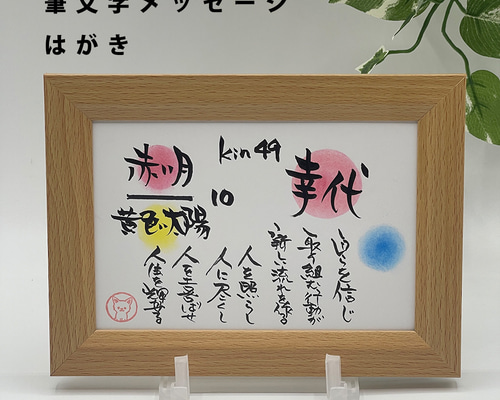 筆文字メッセージ
はがき
kin 49
赤い月
黄色い太陽
10
幸代
自らを信じ
取り組む行動が
新しい流れを作る
人を照らし
人に尽くし
人を喜ばせ
人生を